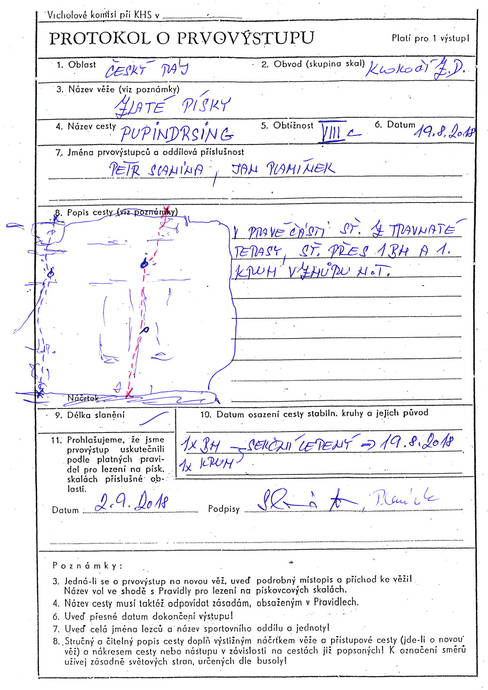 Vrcholové komisi při KHS v
PROTOKOL O PRVOVÝSTUPU
Platí pro 1 výstup!
1. Oblast ČESKÝ RÁJ
2. Obvod (skupina skal)
3. Název věže (viz poznámky)
ZLATÉ PÍSKY
4. Název cesty PUPINDRSING
5. Obtížnost VIII c
6. Datum 19.8.2018
7. Jména prvovýstupců a oddílová příslušnost
PETR SLANINA, JAN PLAMÍNEK
8. Popis cesty (viz poznámky)
V PRAVÉ ČÁSTI ST. Z TRAVNATÉ
TERASY, ST. PŘES 1 BH A 1.
KRUH VZHŮRU N.T.
Náčrtek
9. Délka slanění
10. Datum osazení cesty stabiln. kruhy a jejich původ
11. Prohlašujeme, že jsme
prvovýstup uskutečnili
podle platných pravi-
del pro lezení na písk.
skalách příslušné ob-
lasti.
1x BH – SEKČNÍ LEPENÝ → 19.8.2018
1x KRUH
Datum 2.9.2018
Podpisy
Poznámky:
3. Jedná-li se o prvovýstup na novou věž, uveď podrobný místopis a příchod ke věži!
Název vol ve shodě s Pravidly pro lezení na pískovcových skalách.
4. Název cesty musí taktéž odpovídat zásadám, obsaženým v Pravidlech.
6. Uveď přesné datum dokončení výstupu!
7. Uveď celá jména lezců a název sportovního oddílu a jednoty!
8. Stručný a čitelný popis cesty doplň výstižným náčrtkem věže a přístupové cesty (jde-li o novou
věž) a nákresem cesty nebo nástupu v závislosti na cestách již popsaných! K označení směrů
užívej zásadně světových stran, určených dle busoly!